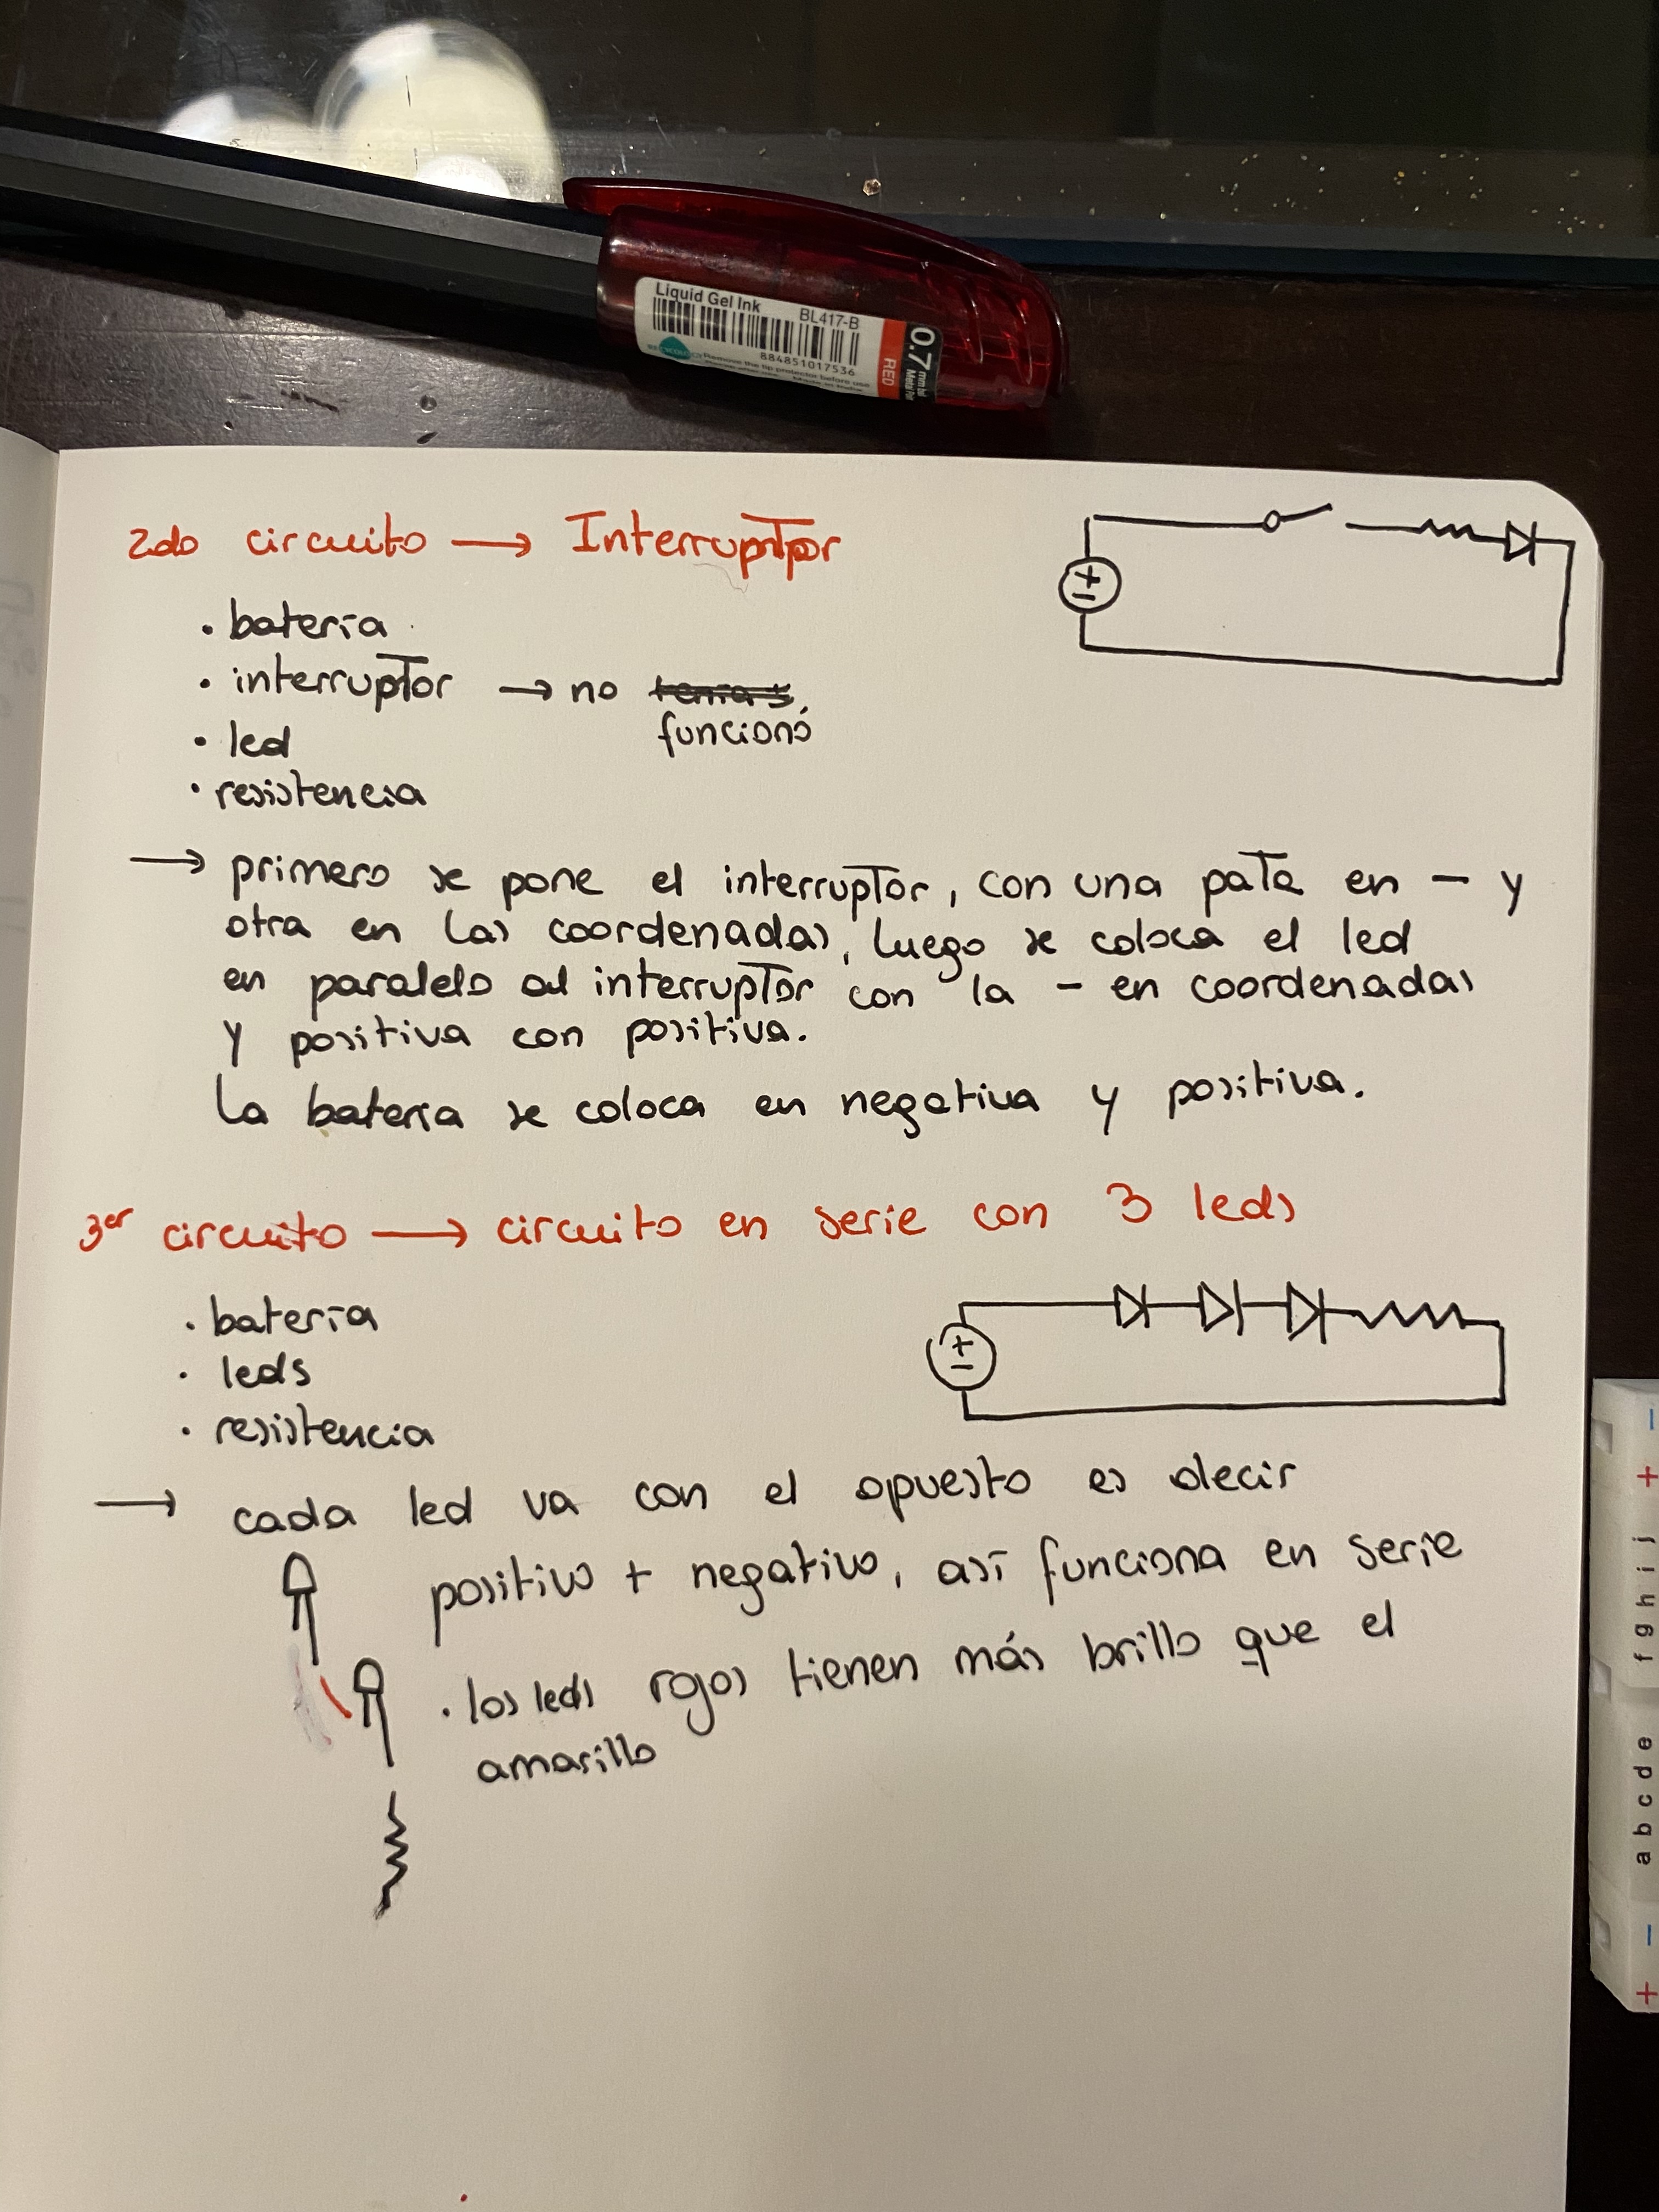 Liquid Gel Ink
BL417-B
884851017536
Remove the tip protector before use
RED
0.7mm
2do circuito → Interruptor
+
-
• batería
• interruptor → no tenía s
funcionó
• led
• resistencia
→ primero se pone el interruptor, con una pata en - y
otra en las coordenadas, luego se coloca el led
en paralelo al interruptor con la - en coordenadas
y positiva con positiva.
La batería se coloca en negativa y positiva.
3er circuito → circuito en serie con 3 leds
• batería
+
-
• leds
• resistencia
→ cada led va con el opuesto es decir
positivo + negativo, así funciona en serie
• los leds rojos tienen más brillo que el
amarillo
+ - a b c d e f g h i j + -